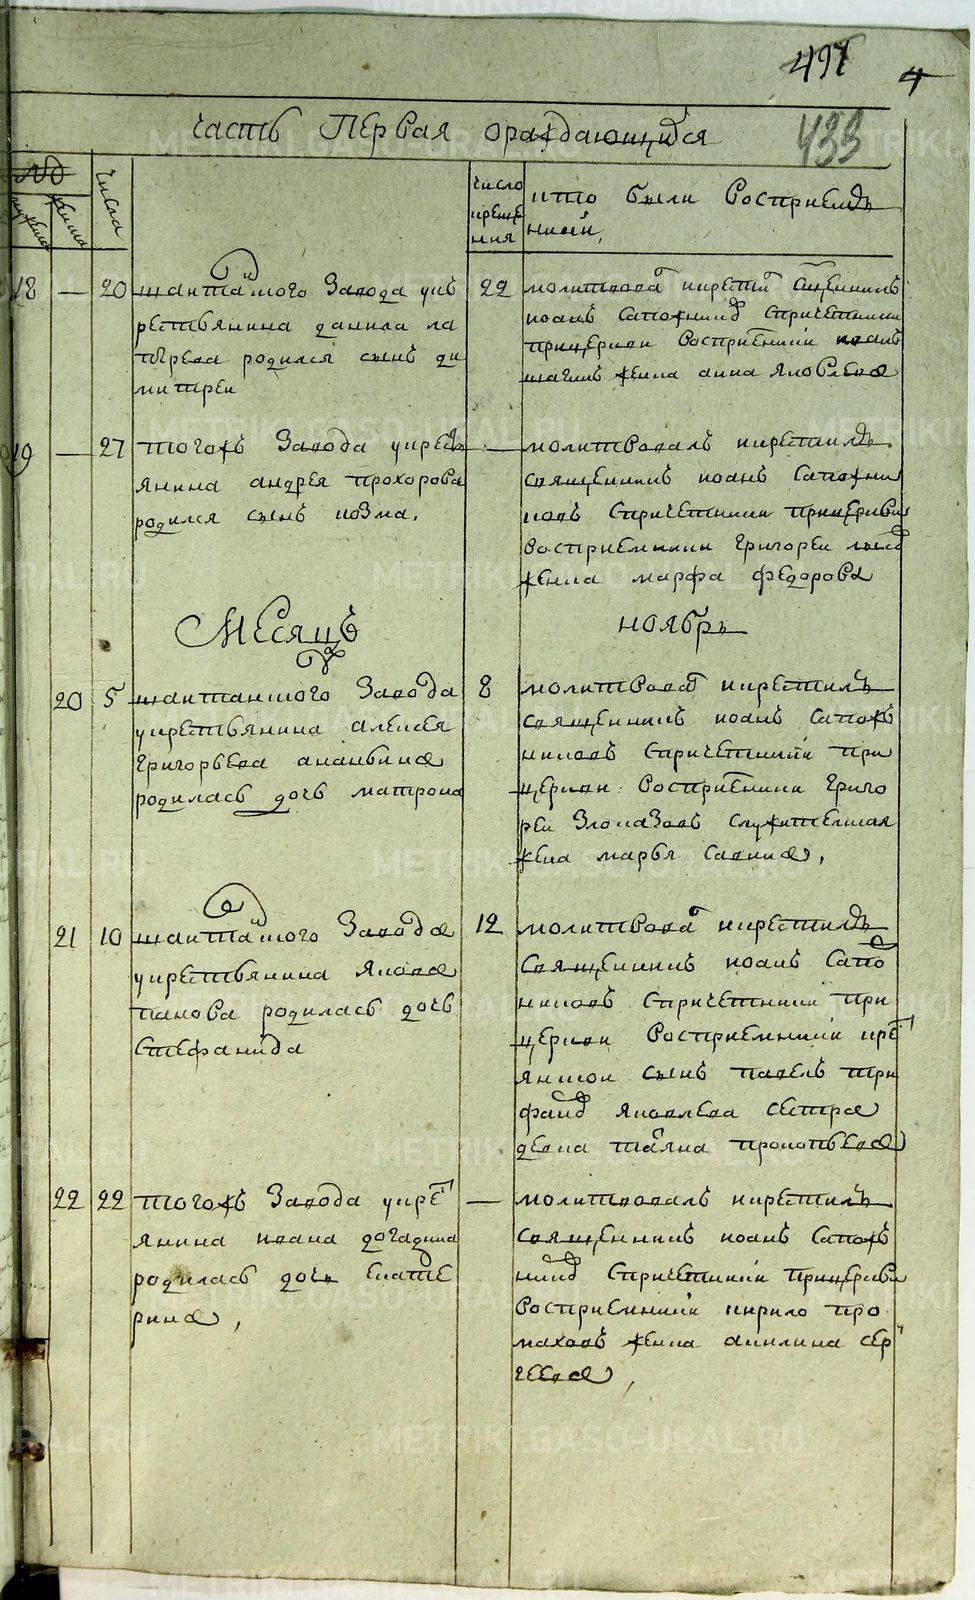 497
4
433
Часть Первая ораждающихся
№
числа
число
креще
ния
кто были Восприемъ
ники
18 — 20 шантаского Завода укъ
рествянина данила ла
родился сынъ ди
митреи
22 молитвова крести Сщенникъ
иоанъ Сапожник Спричетники
прицеркви Восприемники иванъ
женка анна яковлева
19 — 27 тогожъ Завода укресть
янина андрея прохорова
родился сынъ козма,
— молитвовалъ икрестилъ
священникъ иоанъ Сапожни
ковъ Спричетники прицеркви
восприемники григореи
женка марфа федорова
Месяцъ ноябрь
20 5 шантанского Завода
укрествянина алексея
григорьева ананьина
родилась дочь матрона
8 молитвова икрестилъ
священникъ иоанъ Сапожъ
никовъ Спричетники при
церкви Восприемники Григо
реи Злоказовъ служительская
жена марья Савина,
21 10 шантаского Завода
укрествянина якова
панова родилась дочь
Стефанида
12 молитвова икрестилъ
Священникъ иоанъ Сапо
никовъ Спричетники при
церкви Восприемники кре
янскои сынъ павелъ три
фан яковлева сестра
девка прокопьева
22 22 тогожъ Завода укре
янина ивана догадина
родилась дочь екате
рина,
— молитвовалъ икрестилъ
священникъ иоанъ Сапожъ
ник Спричетники прицеркви
Восприемники кирило про
маховъ женка акилина сер
геева,